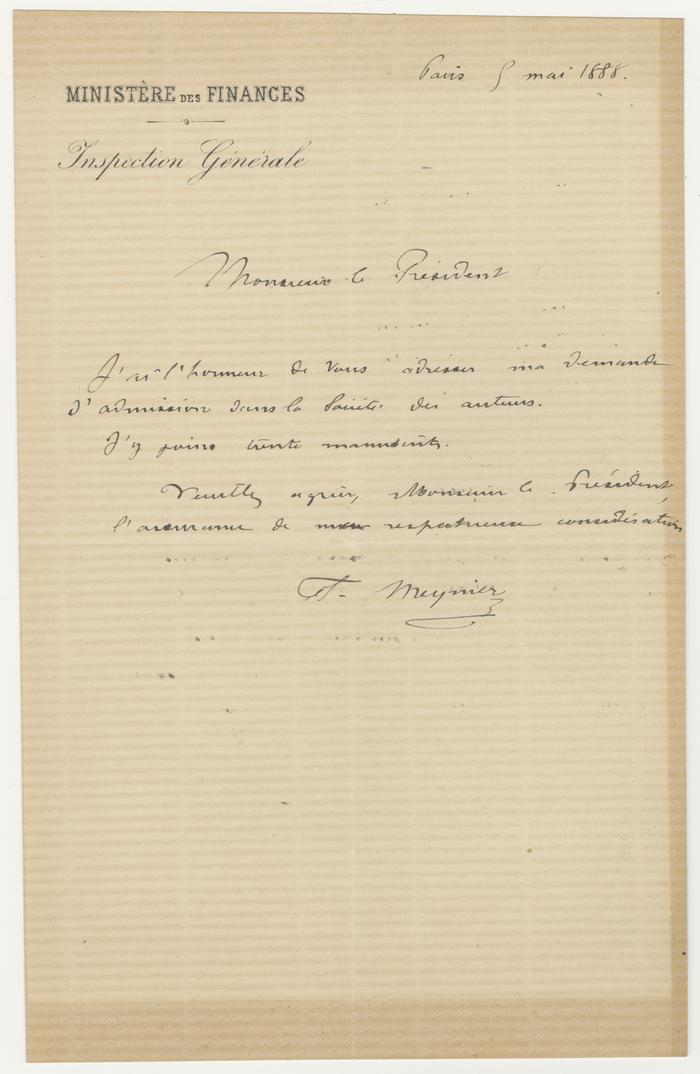 Paris 5 mai 1888.
MINISTÈRE DES FINANCES
Inspection Générale
Monsieur le Président
J'ai l'honneur de vous adresser ma demande
d'admission dans la Société des auteurs.
J'y joins trente manuscrits.
Veuillez agréer, Monsieur le Président
l'assurance de mon respectueuse considération
Meynier